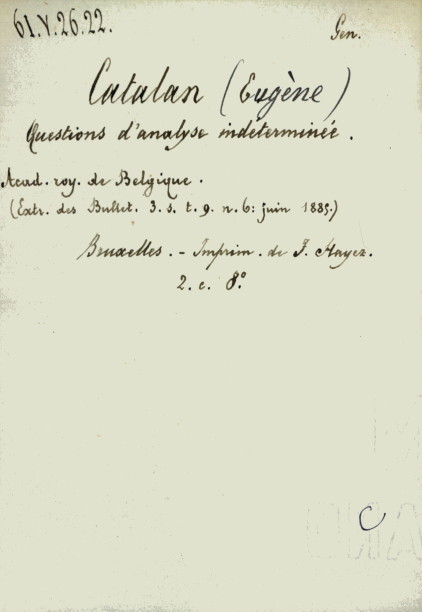 61.V.26.22.
Gen.
Catalan (Eugène)
Questions d'analyse indéterminée.
Acad. roy. de Belgique.
(Extr. des Bullet. 3. s. t. 9. n. 6: juin 1885.)
Bruxelles. - Imprim. de F. Hayez.
2. c. 8.º
C